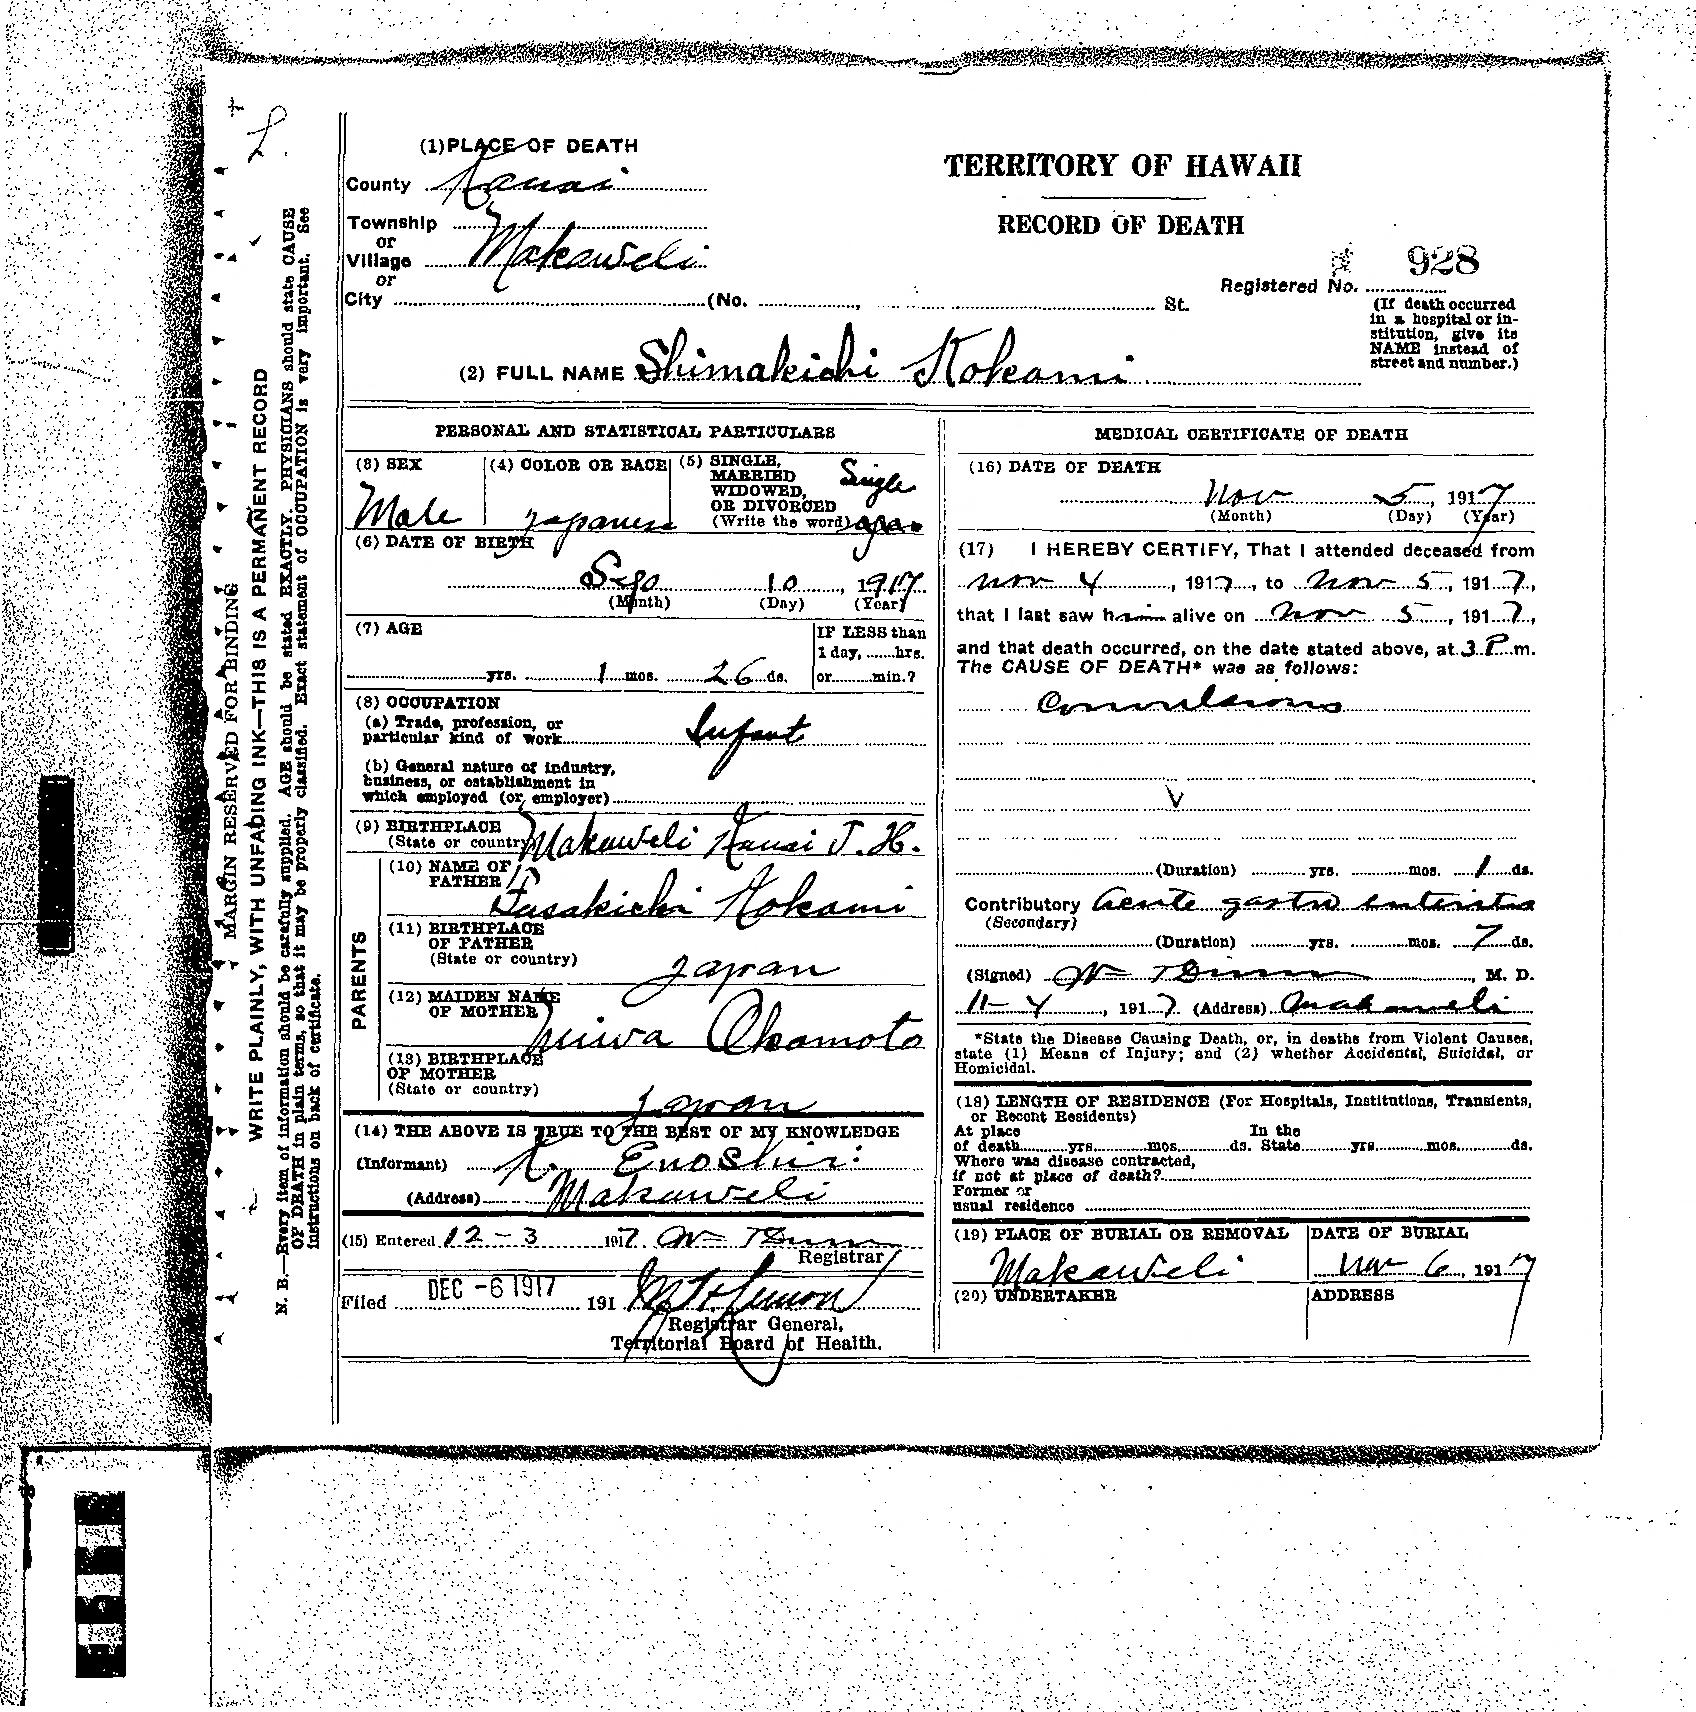 (1) PLACE OF DEATH
County Kauai
Township
or
Village Makaweli
or
City (No. , St.
TERRITORY OF HAWAII
RECORD OF DEATH
928
Registered No.
(If death occurred
in a hospital or in-
stitution, give its
NAME instead of
street and number.)
(2) FULL NAME Shimakichi Kokami
PERSONAL AND STATISTICAL PARTICULARS
(3) SEX
Male
(4) COLOR OR RACE
Japanese
(5) SINGLE,
MARRIED
WIDOWED,
OR DIVORCED
(Write the word)
Single
(6) DATE OF BIRTH
10, 1917
(Month) (Day) (Year)
(7) AGE
yrs. 1 mos. 26 ds.
IF LESS than
1 day, hrs.
or min.?
(8) OCCUPATION
(a) Trade, profession, or
particular kind of work Infant
(b) General nature of industry,
business, or establishment in
which employed (or employer)
(9) BIRTHPLACE
(State or country) Makaweli Kauai T. H.
PARENTS
(10) NAME OF
FATHER
Tasakichi Kokami
(11) BIRTHPLACE
OF FATHER
(State or country)
Japan
(12) MAIDEN NAME
OF MOTHER
Miwa Okamoto
(13) BIRTHPLACE
OF MOTHER
(State or country)
Japan
(14) THE ABOVE IS TRUE TO THE BEST OF MY KNOWLEDGE
(Informant) K. Enoshiri
(Address) Makaweli
(15) Entered 12-3 1917
Registrar
Filed DEC -6 1917 191
Registrar General,
Territorial Board of Health.
MEDICAL CERTIFICATE OF DEATH
(16) DATE OF DEATH
Nov 5, 1917
(Month) (Day) (Year)
(17) I HEREBY CERTIFY, That I attended deceased from
Nov 4, 1917, to Nov 5, 1917,
that I last saw him alive on Nov 5, 1917,
and that death occurred, on the date stated above, at 3 P. m.
The CAUSE OF DEATH* was as follows:
Convulsions
(Duration) yrs. mos. 1 ds.
Contributory Acute gastro enteritis
(Secondary)
(Duration) yrs. mos. 7 ds.
(Signed) , M. D.
11-4, 1917. (Address) Makaweli
*State the Disease Causing Death, or, in deaths from Violent Causes,
state (1) Means of Injury; and (2) whether Accidental, Suicidal, or
Homicidal.
(18) LENGTH OF RESIDENCE (For Hospitals, Institutions, Transients,
or Recent Residents)
At place In the
of death yrs. mos. ds. State yrs. mos. ds.
Where was disease contracted,
if not at place of death?
Former or
usual residence
(19) PLACE OF BURIAL OR REMOVAL
Makaweli
DATE OF BURIAL
Nov 6, 1917
(20) UNDERTAKER
ADDRESS
MARGIN RESERVED FOR BINDING
WRITE PLAINLY, WITH UNFADING INK—THIS IS A PERMANENT RECORD
N. B.—Every item of information should be carefully supplied. AGE should be stated EXACTLY. PHYSICIANS should state CAUSE
OF DEATH in plain terms, so that it may be properly classified. Exact statement of OCCUPATION is very important. See
instructions on back of certificate.